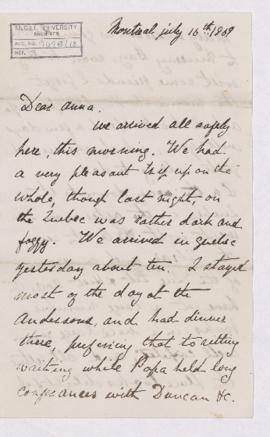 McGILL UNIVERSITY
ARCHIVES
ACC. NO.
REF.
Montreal July 16th, 1869
Dear Anna.
We arrived all safely
here, this morning. We had
a very pleasant trip up on the
whole, though last night, on
the Quebec was rather dark and
foggy. We arrived in Quebec
yesterday about ten. I stayed
most of the day at the
Andersons, and had dinner
there, prefering that to sitting
waiting while Papa held long
conferances with Duncan &c.